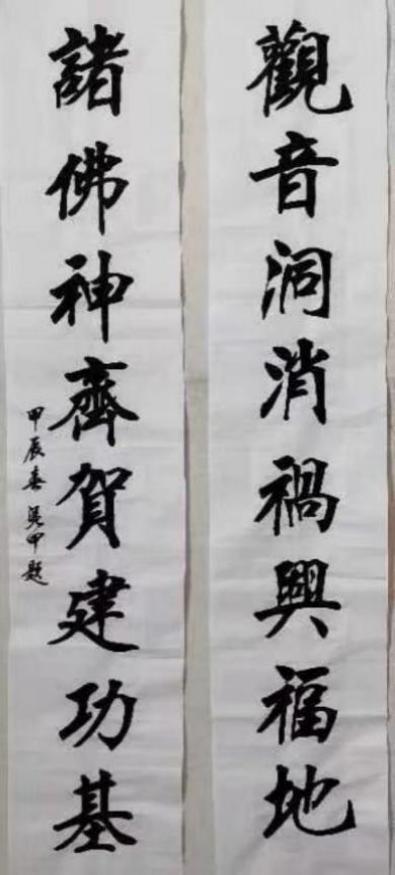 觀音洞消禍興福地
諸佛神齊賀建功基
甲辰春吴甲題